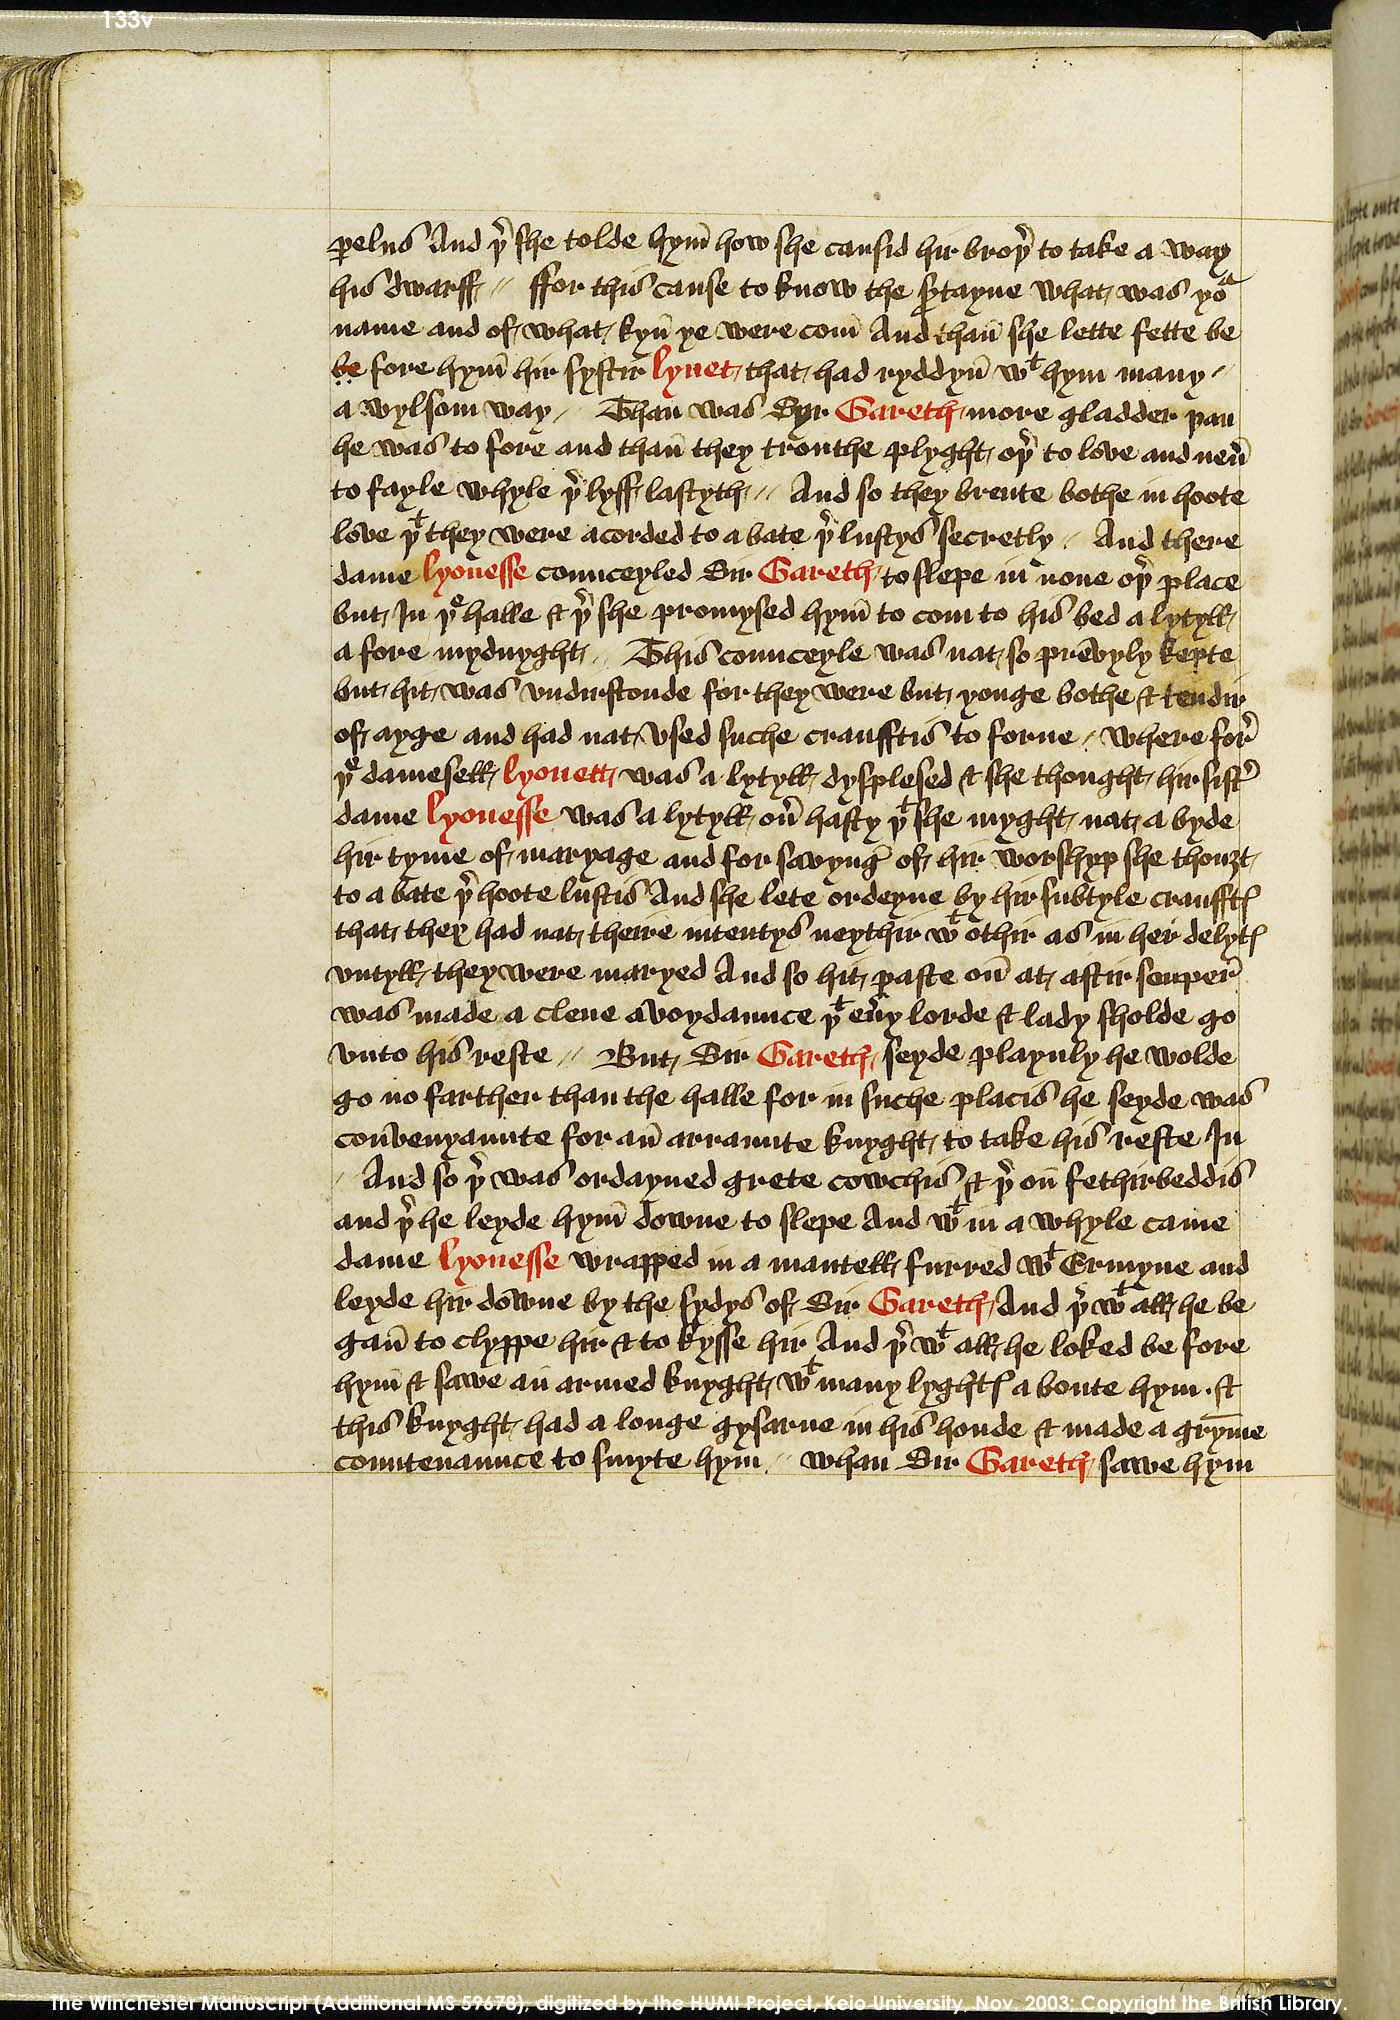 133v
pelus And þer she tolde hym̄ how she causid hir broþer to take a way
his dwarff // ffor this cause to know the s̄tayne what was yor
name and of what kyn̄ ye were com̄ And than̄ she lette fette be
be fore hym̄ hir systir lynet that had ryddyn̄ wt hym many //
a wylsom way // Than was Syr Gareth more gladder þan
he was to fore and than̄ they trouthe plyght oþer to love and neuer
to fayle whyle þer lyff lastyth // And so they brente bothe in hoote
love þt they were acorded to a bate þer lustys secretly // And there
dame lyonesse counceyled Sir Gareth to slepe in none oþer place
but In þe halle & þer she promysed hym̄ to com to his bed a lytyll
a fore mydnyght // This counceyle was nat so prevyly kepte
but hit was vndirstonde for they were but yonge bothe & tendir
of ayge and had nat vsed suche craufftis to forne // where for̄
þe damesell lyonett was a lytyll dysplesed & she thought hir sister
dame lyonesse was a lytyll ouer hasty þt she myght nat a byde
hir tyme of maryage and for savyng of hir worshyp she thouȝt
to a bate þer hoote lustis And she lete ordeyne by hir subtyle craufftes
that they had nat theire intentys neythir wt othir as in her delytes
vntyll they were maryed And so hit paste on̄ at aftir souper̄
was made a clene avoydaunce þt euery lorde & lady sholde go
vnto his reste // But Sir Gareth seyde playnly he wolde
go no farther than the halle for in suche placis he seyde was
convenyaunte for an̄ arraunte knyght to take his reste In
/ And so þer was ordayned grete cowchis & þer on̄ fethirbeddis
and þer he leyde hym̄ downe to slepe And wt in a whyle came
dame lyonesse wrapped in a mantell furred wt Ermyne and
leyde hir downe by the sydys of Sir Gareth And þer wt all he be
gan̄ to clyppe hir & to kysse hir And þer wt all he loked be fore
hym̄ & sawe an̄ armed knyght wt many lyghtes a boute hym · &
this knyght had a longe gysarne in his honde & made a gryme
countenaunce to smyte hym // whan Sir Gareth sawe hym
The Winchester Manuscript (Additional MS 59678), digitized by the HUMI Project, Keio University, Nov. 2003; Copyright the British Library.